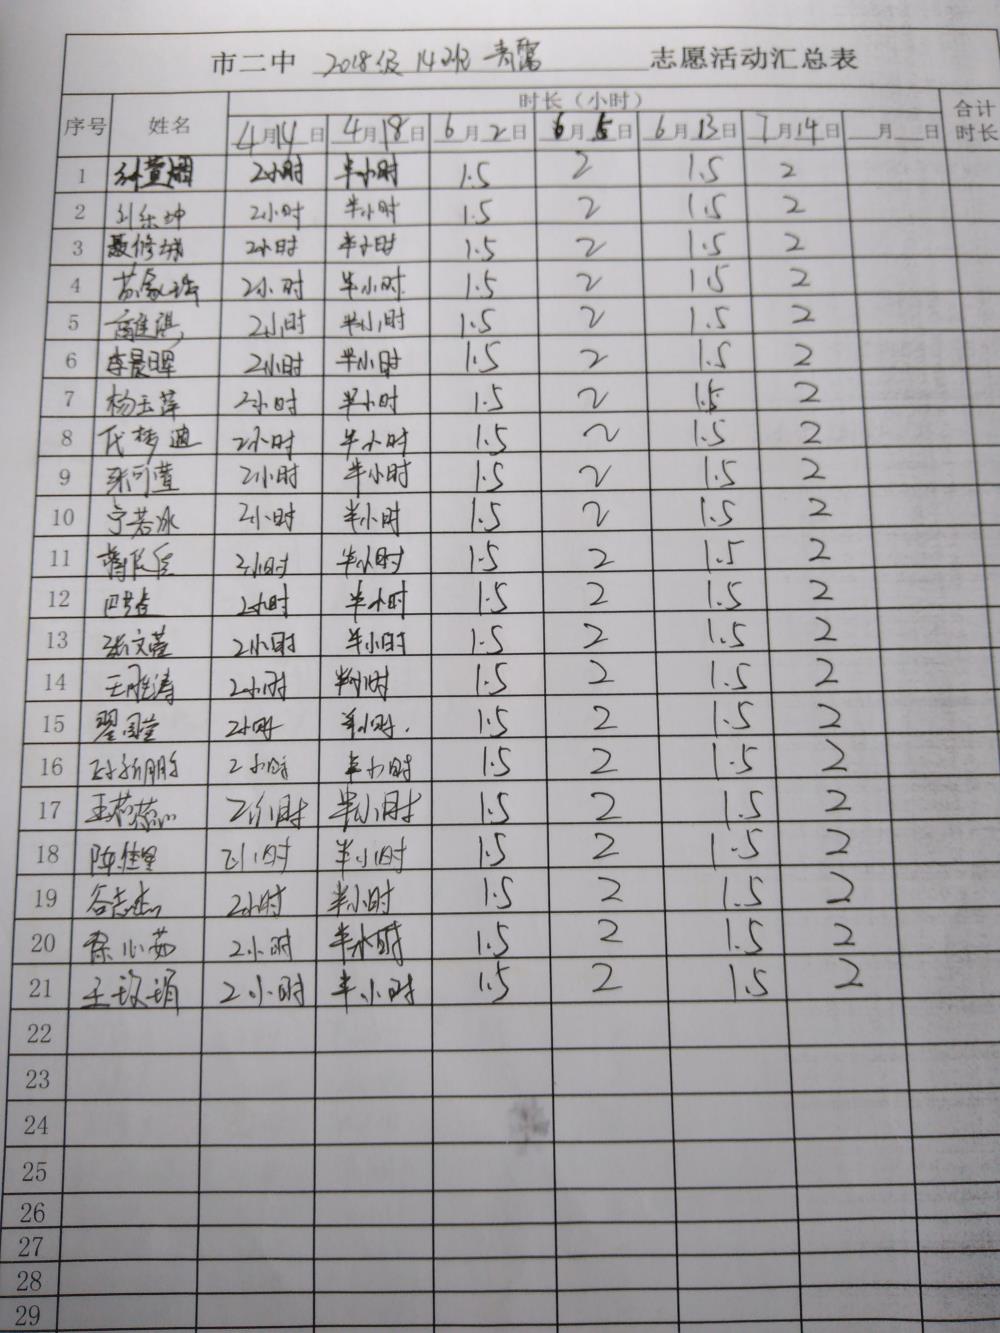 市二中 2018级14班青露 志愿活动汇总表
序号 姓名 时长（小时） 合计时长
4月14日 4月18日 6月2日 6月5日 6月13日 7月14日 月 日
1 2小时 半小时 1.5 2 1.5 2
2 刘乐坤 2小时 半小时 1.5 2 1.5 2
3 聂修 2小时 半小时 1.5 2 1.5 2
4 苏 2小时 半小时 1.5 2 1.5 2
5 2小时 半小时 1.5 2 1.5 2
6 李晨晖 2小时 半小时 1.5 2 1.5 2
7 杨玉萍 2小时 半小时 1.5 2 1.5 2
8 代梦迪 2小时 半小时 1.5 2 1.5 2
9 张可萱 2小时 半小时 1.5 2 1.5 2
10 宁若冰 2小时 半小时 1.5 2 1.5 2
11 2小时 半小时 1.5 2 1.5 2
12 2小时 半小时 1.5 2 1.5 2
13 张文萱 2小时 半小时 1.5 2 1.5 2
14 王雅涛 2小时 半小时 1.5 2 1.5 2
15 翟国莹 2小时 半小时 1.5 2 1.5 2
16 孙新鹏 2小时 半小时 1.5 2 1.5 2
17 王蕊 2小时 半小时 1.5 2 1.5 2
18 陈佳星 2小时 半小时 1.5 2 1.5 2
19 谷志杰 2小时 半小时 1.5 2 1.5 2
20 徐心茹 2小时 半小时 1.5 2 1.5 2
21 王玫瑄 2小时 半小时 1.5 2 1.5 2
22
23
24
25
26
27
28
29